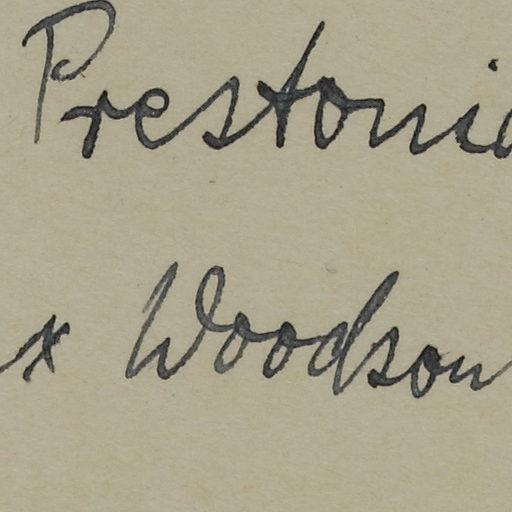 Prestonia
x Woodson